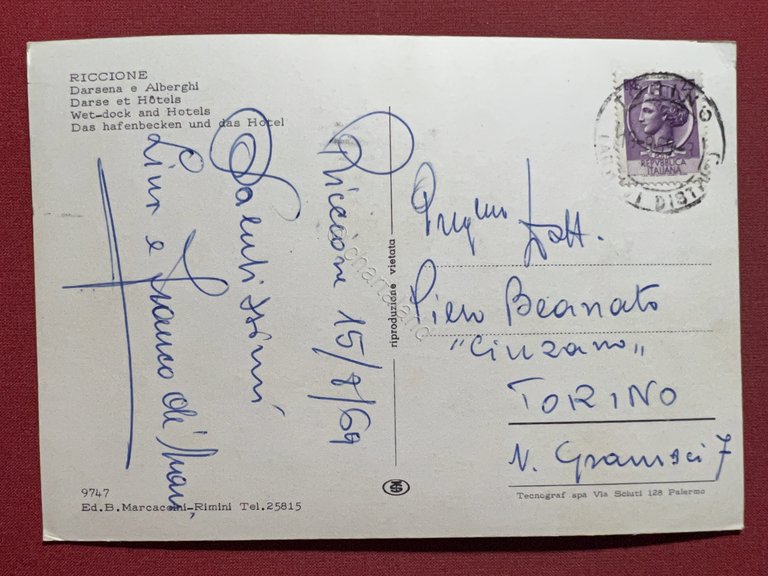 RICCIONE
Darsena e Alberghi
Darse et Hôtels
Wet-dock and Hotels
Das hafenbecken und das Hotel
Riccione 15/8/69
Salutissimi
e Franco
riproduzione vietata
TORINO
REPVBBLICA
ITALIANA
Dott.
Piero Beanato
"Cinzano"
TORINO
V. Gramsci 7
9747
Ed.B.Marcaccini-Rimini Tel.25815
Tecnograf spa Via Sciuti 128 Palermo